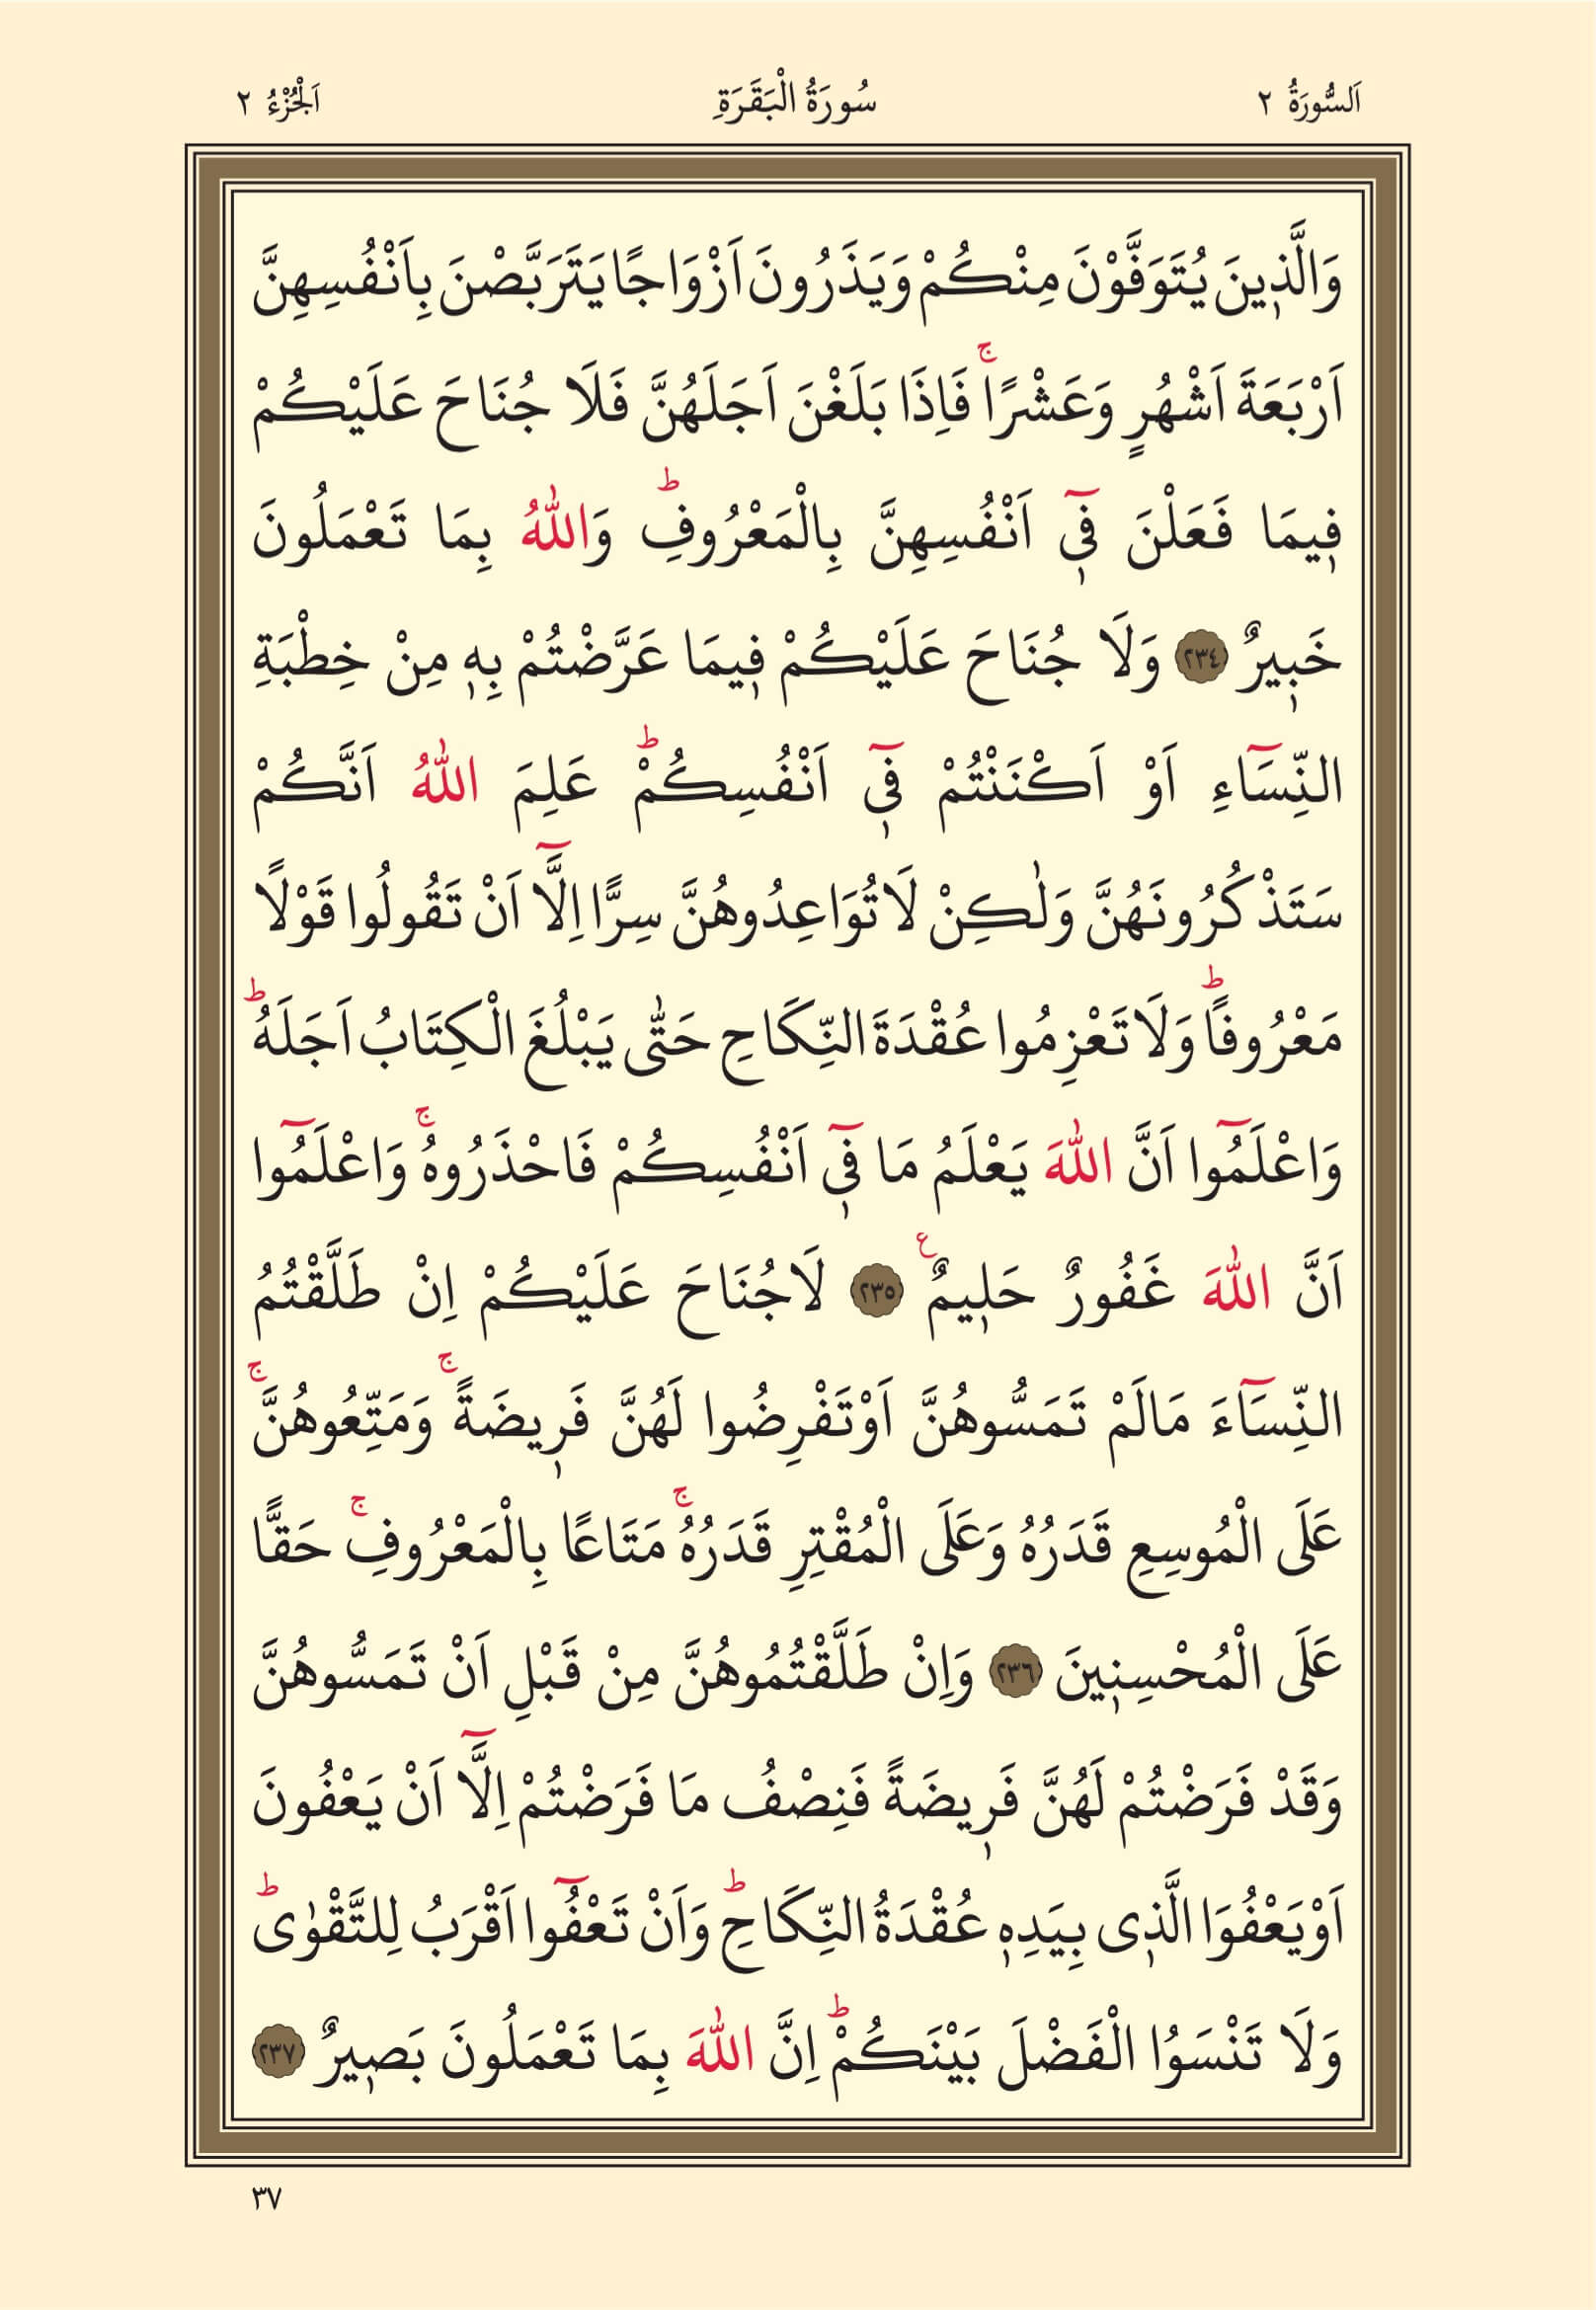 اَلسُّورَةُ ٢ سُورَةُ الْبَقَرَةِ اَلْجُزْءُ ٢
وَالَّذ۪ينَ يُتَوَفَّوْنَ مِنْكُمْ وَيَذَرُونَ اَزْوَاجًا يَتَرَبَّصْنَ بِاَنْفُسِهِنَّ
اَرْبَعَةَ اَشْهُرٍ وَعَشْرًاۚ فَاِذَا بَلَغْنَ اَجَلَهُنَّ فَلَا جُنَاحَ عَلَيْكُمْ
ف۪يمَا فَعَلْنَ ف۪ٓي اَنْفُسِهِنَّ بِالْمَعْرُوفِۜ وَاللّٰهُ بِمَا تَعْمَلُونَ
خَب۪يرٌ ﴿٢٣٤﴾ وَلَا جُنَاحَ عَلَيْكُمْ ف۪يمَا عَرَّضْتُمْ بِه۪ مِنْ خِطْبَةِ
النِّسَٓاءِ اَوْ اَكْنَنْتُمْ ف۪ٓي اَنْفُسِكُمْۜ عَلِمَ اللّٰهُ اَنَّكُمْ
سَتَذْكُرُونَهُنَّ وَلٰكِنْ لَا تُوَاعِدُوهُنَّ سِرًّا اِلَّٓا اَنْ تَقُولُوا قَوْلًا
مَعْرُوفًاۜ وَلَا تَعْزِمُوا عُقْدَةَ النِّكَاحِ حَتّٰى يَبْلُغَ الْكِتَابُ اَجَلَهُۜ
وَاعْلَمُٓوا اَنَّ اللّٰهَ يَعْلَمُ مَا ف۪ٓي اَنْفُسِكُمْ فَاحْذَرُوهُۚ وَاعْلَمُٓوا
اَنَّ اللّٰهَ غَفُورٌ حَل۪يمٌ ع ﴿٢٣٥﴾ لَاجُنَاحَ عَلَيْكُمْ اِنْ طَلَّقْتُمُ
النِّسَٓاءَ مَالَمْ تَمَسُّوهُنَّ اَوْتَفْرِضُوا لَهُنَّ فَر۪يضَةًۚ وَمَتِّعُوهُنَّۚ
عَلَى الْمُوسِعِ قَدَرُهُ وَعَلَى الْمُقْتِرِ قَدَرُهُۚ مَتَاعًا بِالْمَعْرُوفِۚ حَقًّا
عَلَى الْمُحْسِن۪ينَ ﴿٢٣٦﴾ وَاِنْ طَلَّقْتُمُوهُنَّ مِنْ قَبْلِ اَنْ تَمَسُّوهُنَّ
وَقَدْ فَرَضْتُمْ لَهُنَّ فَر۪يضَةً فَنِصْفُ مَا فَرَضْتُمْ اِلَّٓا اَنْ يَعْفُونَ
اَوْيَعْفُوَا الَّذ۪ي بِيَدِه۪ عُقْدَةُ النِّكَاحِۜ وَاَنْ تَعْفُٓوا اَقْرَبُ لِلتَّقْوٰىۜ
وَلَا تَنْسَوُا الْفَضْلَ بَيْنَكُمْۜ اِنَّ اللّٰهَ بِمَا تَعْمَلُونَ بَص۪يرٌ ﴿٢٣٧﴾
٣٧